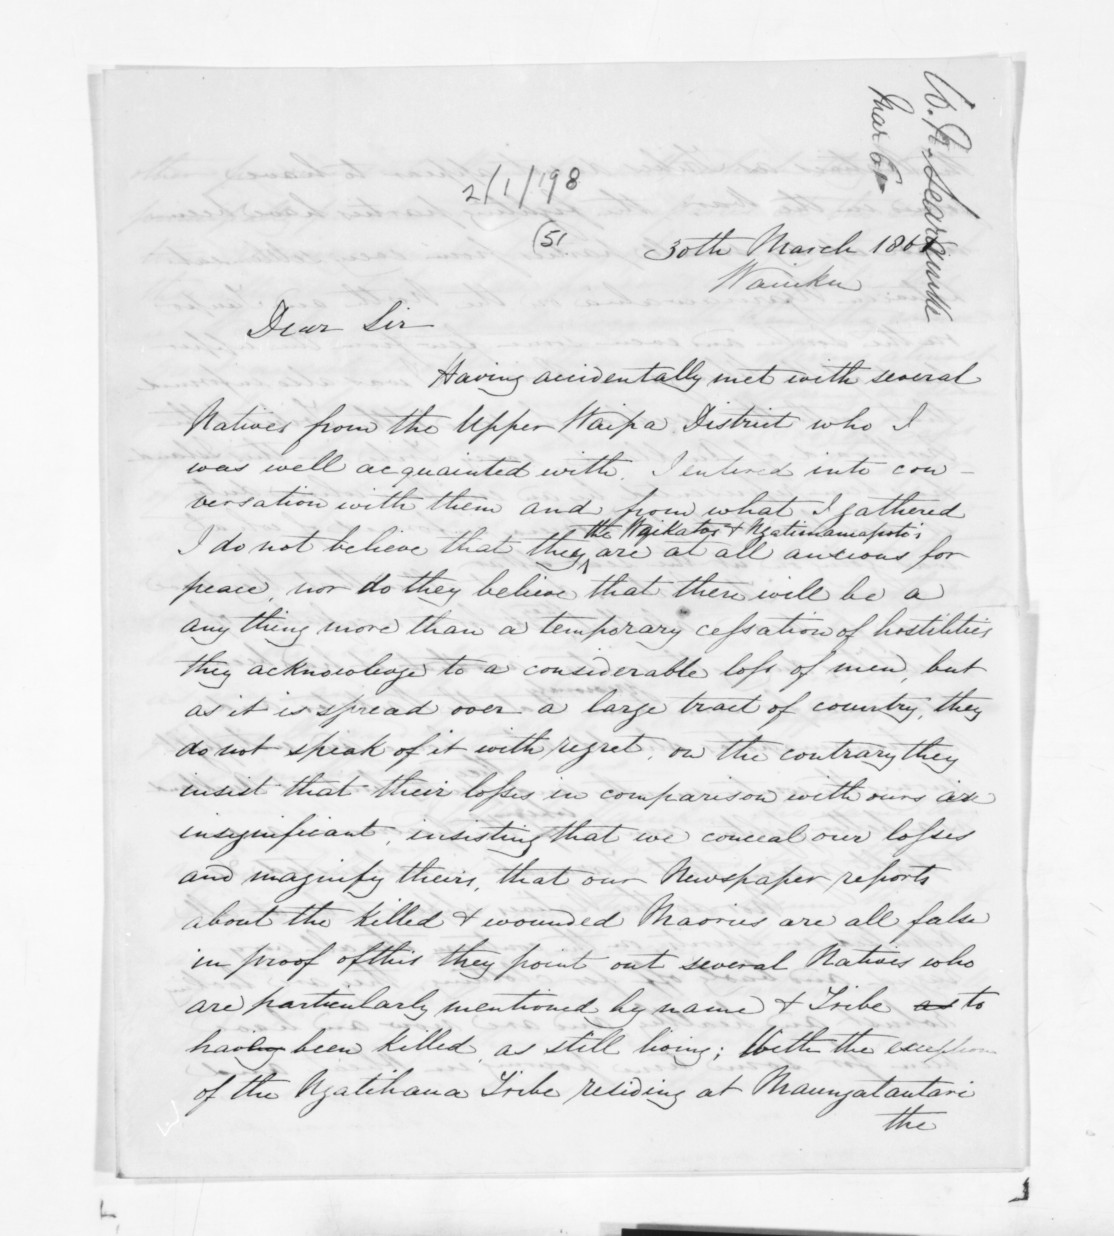 W. N. Searancke
Mar 64
2/1/198
(51
30th March 1864
Waiuku
Dear Sir
Having accidentally met with several
Natives from the Upper Waipa District who I
was well acquainted with, I entered into con-
versation with them and from what I gathered
the Waikatos & Ngatimaniapoto's
I do not believe that they are at all anxious for
peace, nor do they believe that there will be a
any thing more than a temporary cessation of hostilities
they acknowledge to a considerable loss of men, but
as it is spread over a large tract of country, they
do not speak of it with regret, on the contrary they
insist that their losses in comparison with ours are
insignificant, insisting that we conceal our losses
and magnify theirs, that our Newspaper reports
about the killed & wounded Maories are all false
in proof of this they point out several Natives who
are particularly mentioned by name & Tribe as to
having been killed, as still living; With the exception
of the Ngatihaua Tribe residing at Maungatautari
the